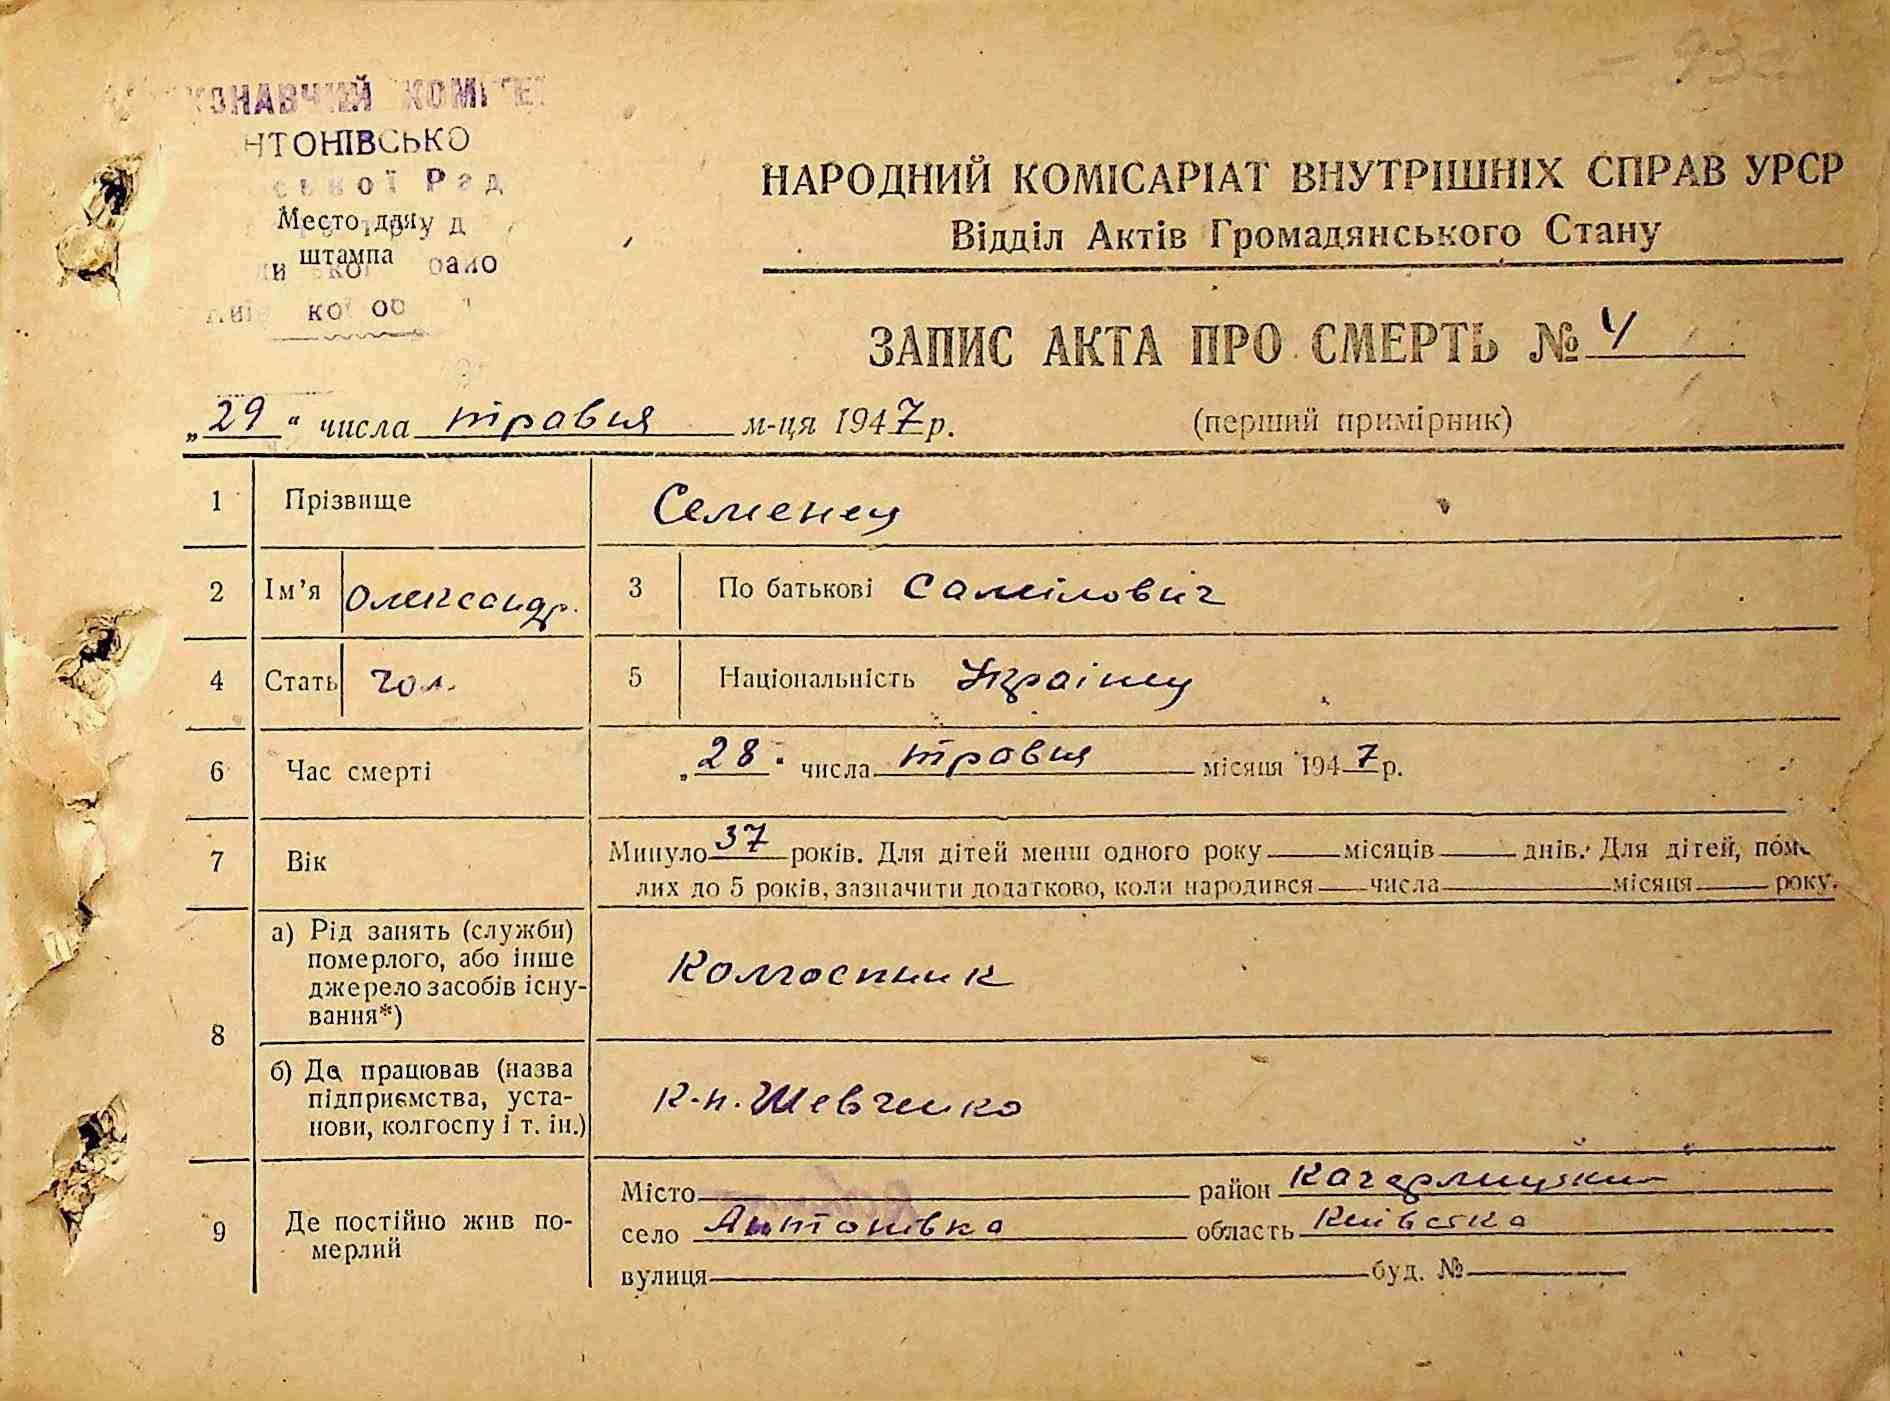 КОНАВЧИЙ КОМІТЕ
НТОНІВСЬКО
ської Рад
Место для
штампа
НАРОДНИЙ КОМІСАРІАТ ВНУТРІШНІХ СПРАВ УРСР
Відділ Актів Громадянського Стану
ЗАПИС АКТА ПРО СМЕРТЬ № 4
„29“ числа травня м-ця 1947 р.
(перший примірник)
1 Прізвище Семенец
2 Ім’я Олександр. 3 По батькові Самілович
4 Стать чол. 5 Національність Українец
6 Час смерті „28“ числа травня місяця 1947 р.
7 Вік Минуло 37 років. Для дітей менш одного року місяців днів. Для дітей, пом
лих до 5 років, зазначити додатково, коли народився числа місяця року.
8 а) Рід занять (служби)
померлого, або інше
джерело засобів існу-
вання*)
Колгоспник
б) Де працював (назва
підприємства, уста-
нови, колгоспу і т. ін.)
к-п. Шевченко
9 Де постійно жив по-
мерлий
Місто район Кагарлицький
село Антонівка область Київська
вулиця буд. №